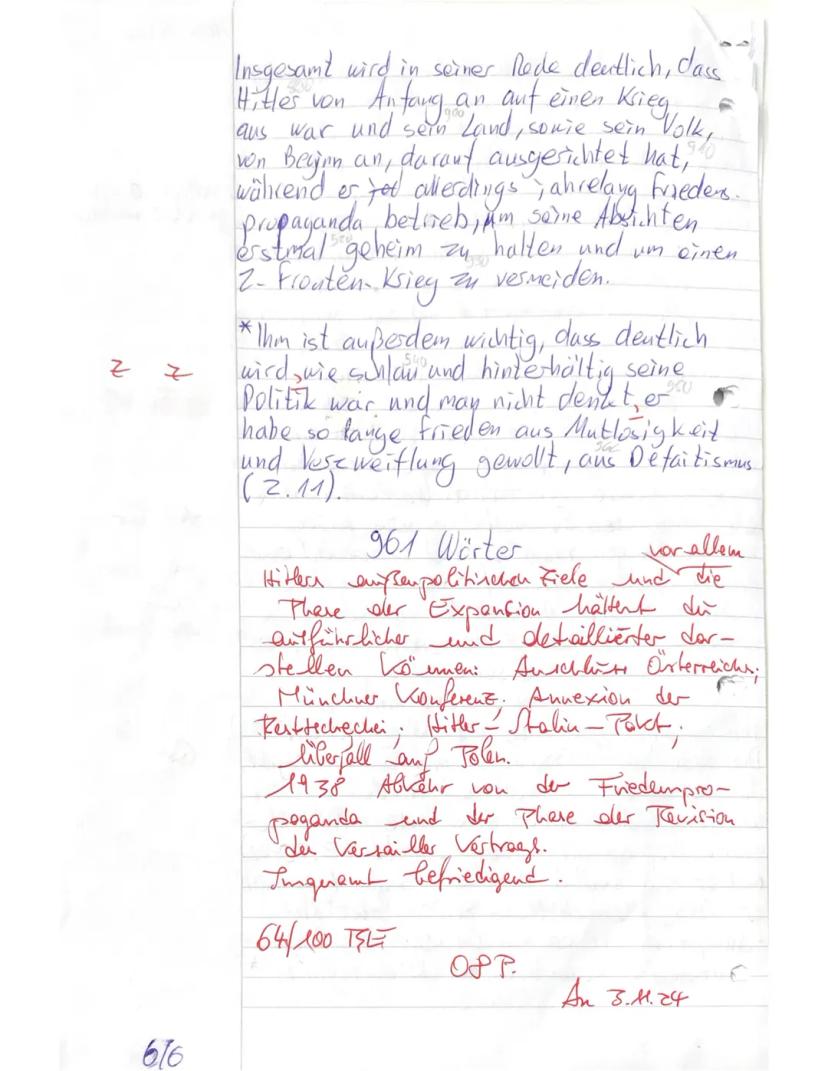 Insgesamt wird in seiner Rede deutlich, dass
Hitler von Anfang an auf einen Krieg
aus war und sein Land, sowie sein Volk,
von Beginn an, darauf ausgerichtet hat,
während er allerdings jahrelang Friedens-
propaganda betrieb, um seine Absichten
erstmal geheim zu halten und um einen
2-Fronten-Krieg zu vermeiden.
*Ihm ist außerdem wichtig, dass deutlich
Z Z wird, wie schlau und hinterhältig seine
Politik war und man nicht denkt, er
habe so lange Frieden aus Mutlosigkeit
und Verzweiflung gewollt, aus Defaitismus
(Z.11).
961 Wörter
vor allem
Hitlers außenpolitischen Ziele und die
Phase der Expansion hättest du
ausführlicher und detaillierter dar-
stellen können: Anschluss Österreichs;
Münchner Konferenz; Annexion der
Resttschechei; Hitler-Stalin-Pakt;
Überfall auf Polen.
1938 Abkehr von der Friedenspro-
paganda und der Phase der Revision
des Versailler Vertrags.
Insgesamt befriedigend.
64/100 BE
08 P.
3.11.24
6/6